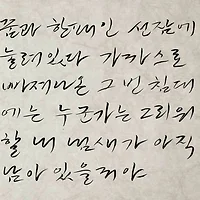 꿈과 한패인 선잠에
눌려있다 가까스로
빠져나온 그 빈 침대
에는 누군가는 그리워
할 내 냄새가 아직
남아 있을 거야